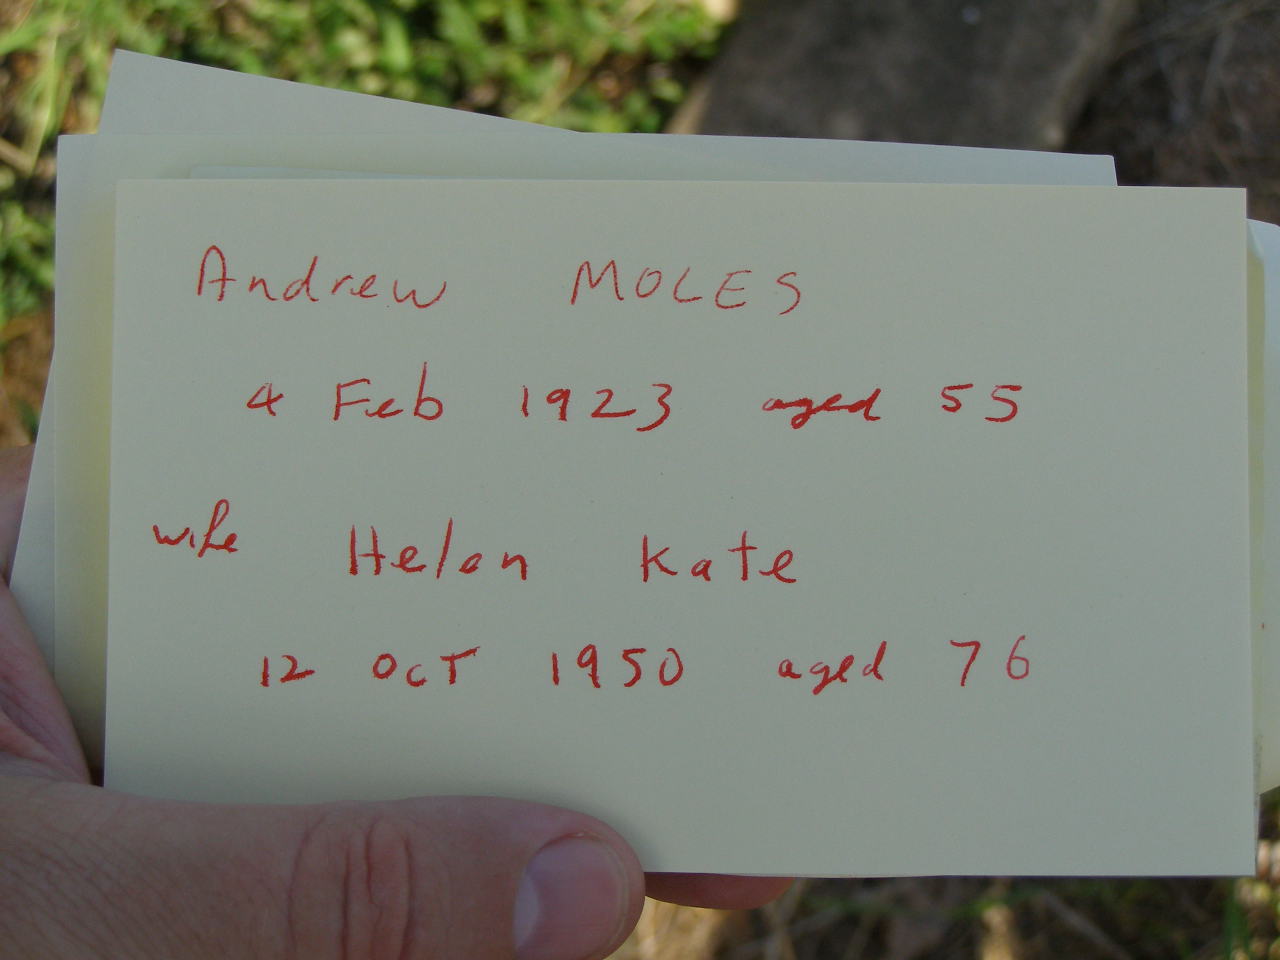 Andrew MOLES
4 Feb 1923 aged 55
wife Helen Kate
12 OCT 1950 aged 76